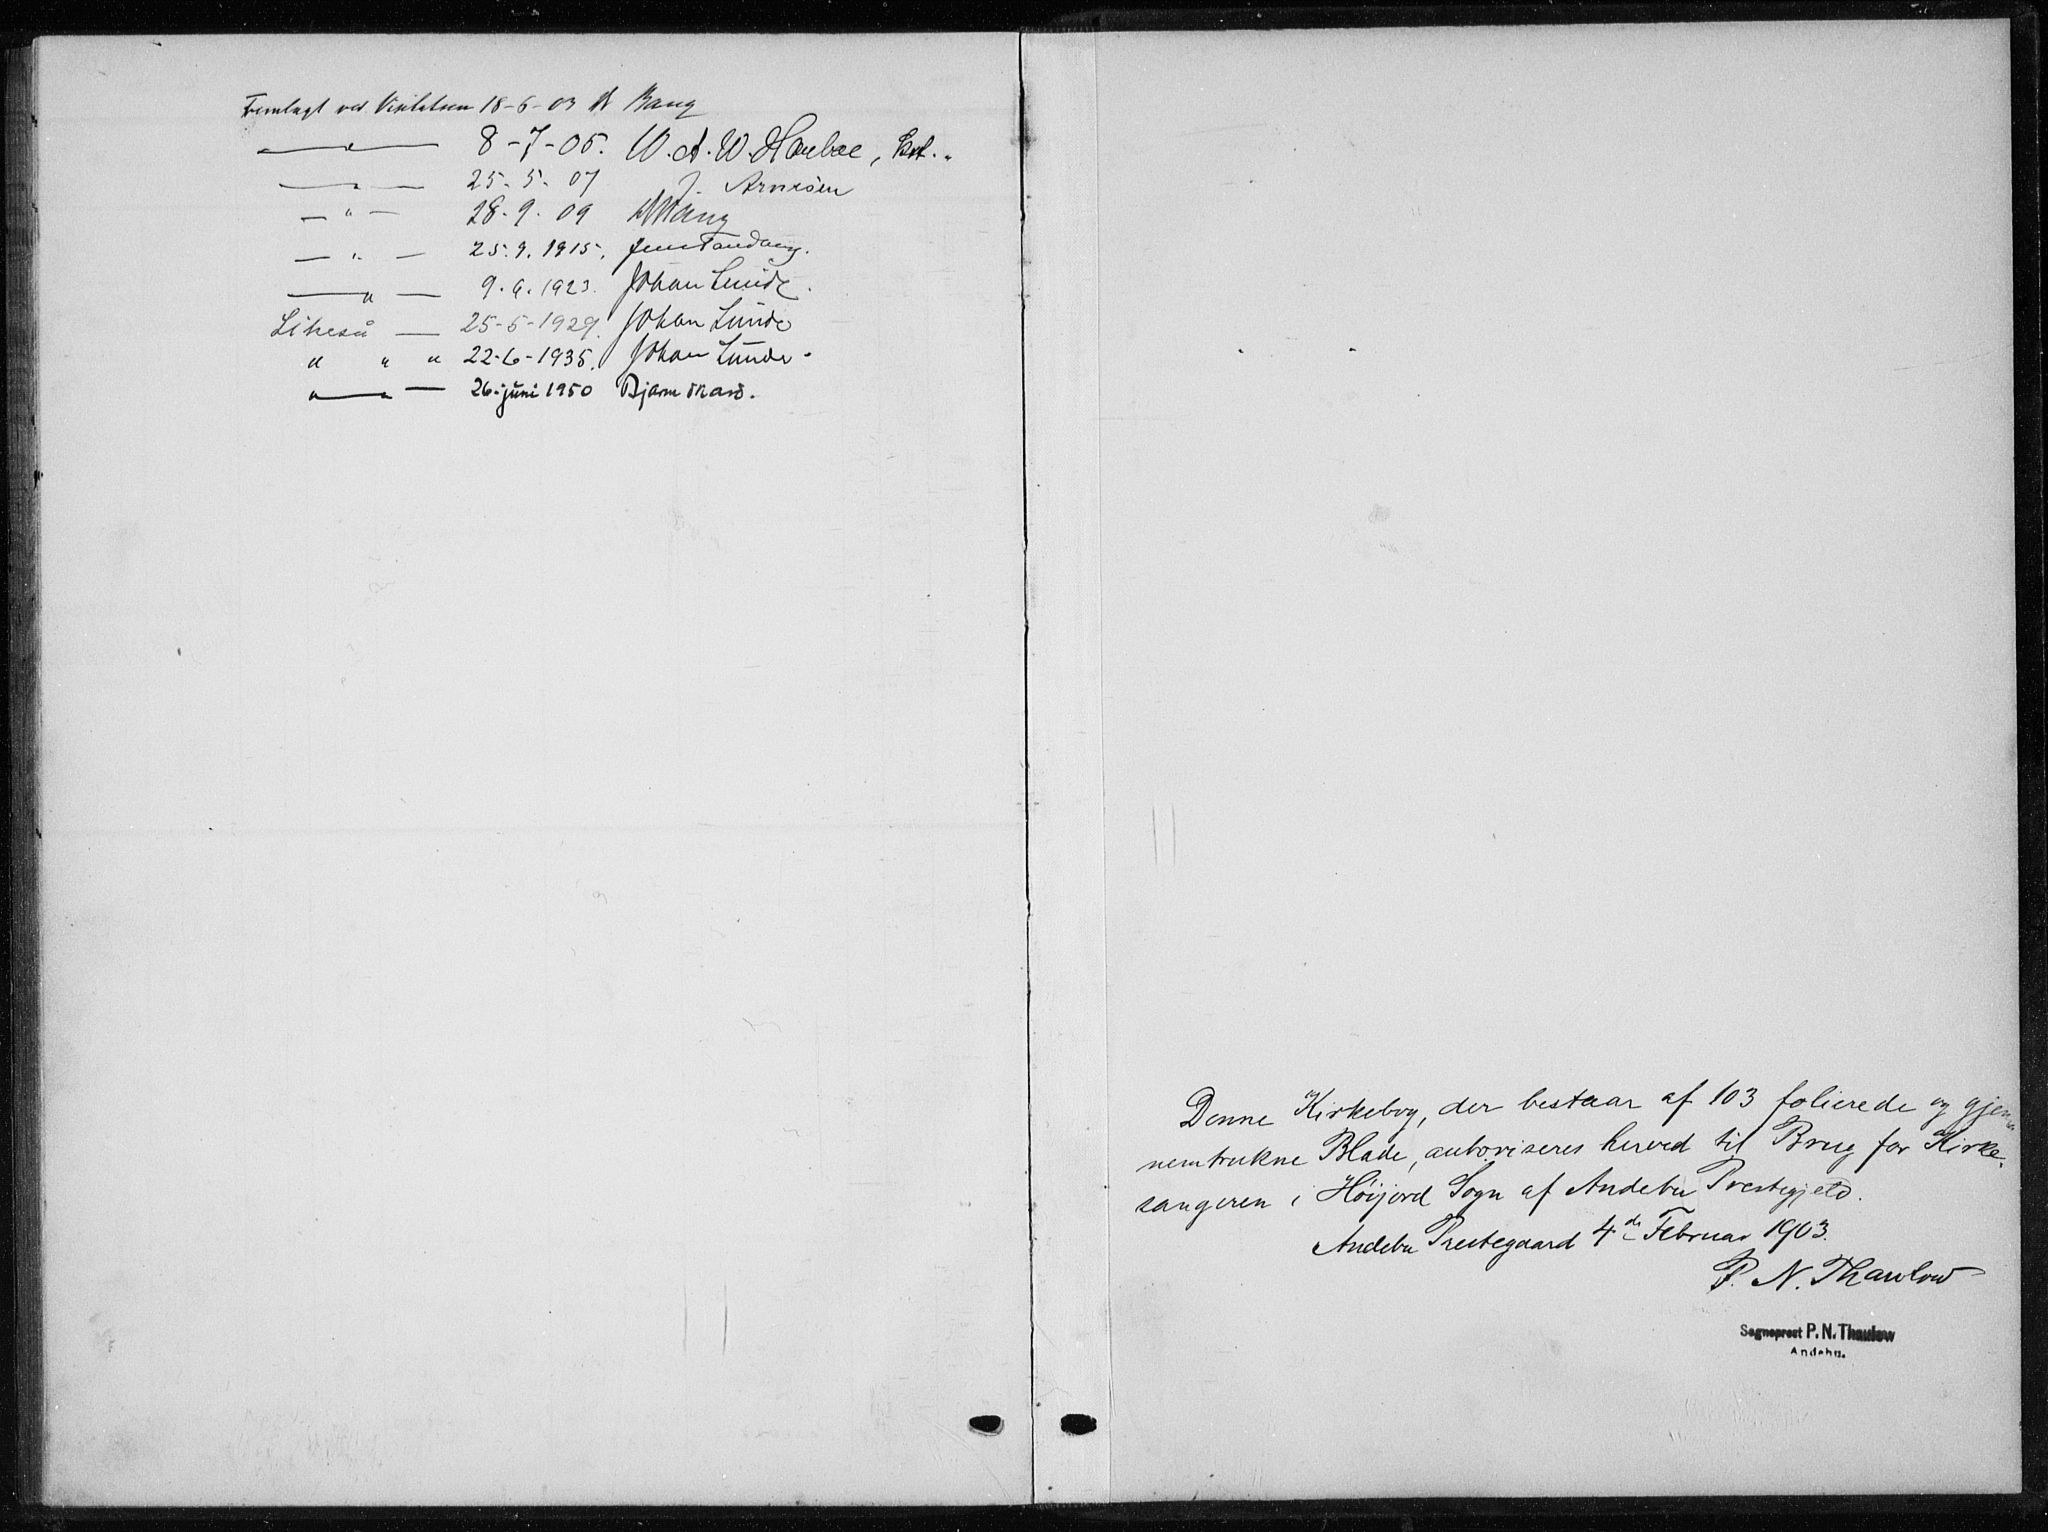 Fremlagt ved Visitatsen 18-6-03 A Bang
— " — 8-7-05. W. A. W. Haubae, kst.
— " — 25-5-07 J. Arnesen
— " — 28-9-09 Bang
— " — 25.9.1915. Jens Tandberg.
— " — 9.9.1923. Johan Lunde.
Likeså — 25-5-1929. Johan Lunde
" " " 22-6-1935. Johan Lunde.
" — " — 26. juni 1950 Bjarne Skard.
Denne Kirkebog, der bestaar af 103 folierede og gjen-
nemtrukne Blade, autoriseres herved til Brug for Kirke-
sangeren i Höijord Sogn af Andebu Prestegjeld.
Andebu Prestegaard 4de Februar 1903.
P. N. Thaulow
Sogneprest P. N. Thaulow
Andebu.